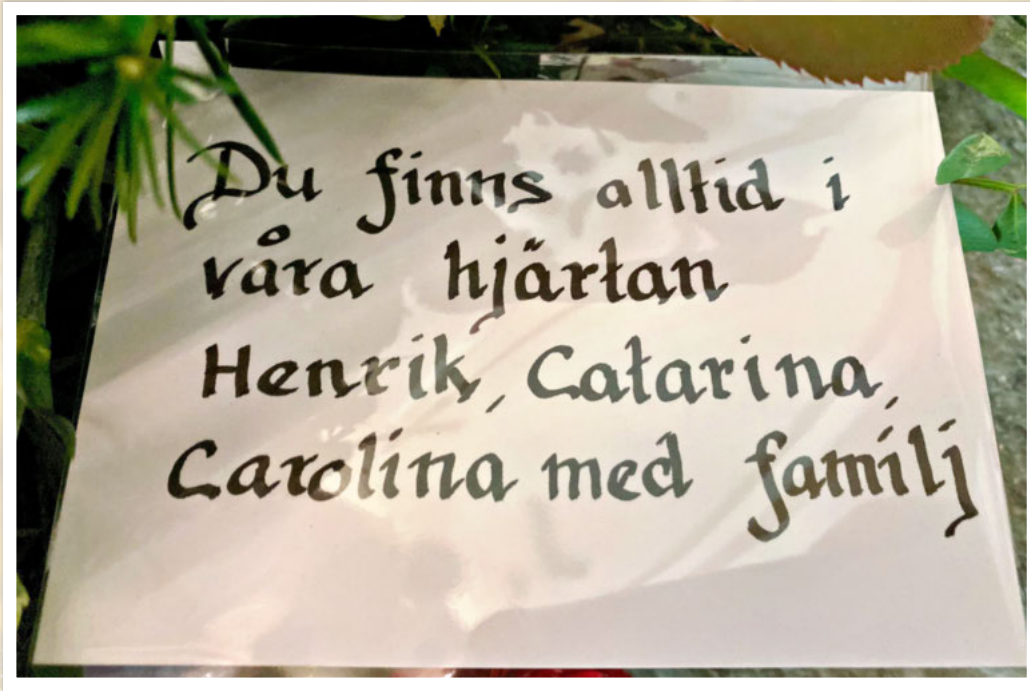 Du finns alltid i
våra hjärtan
Henrik, Catarina,
Carolina med familj